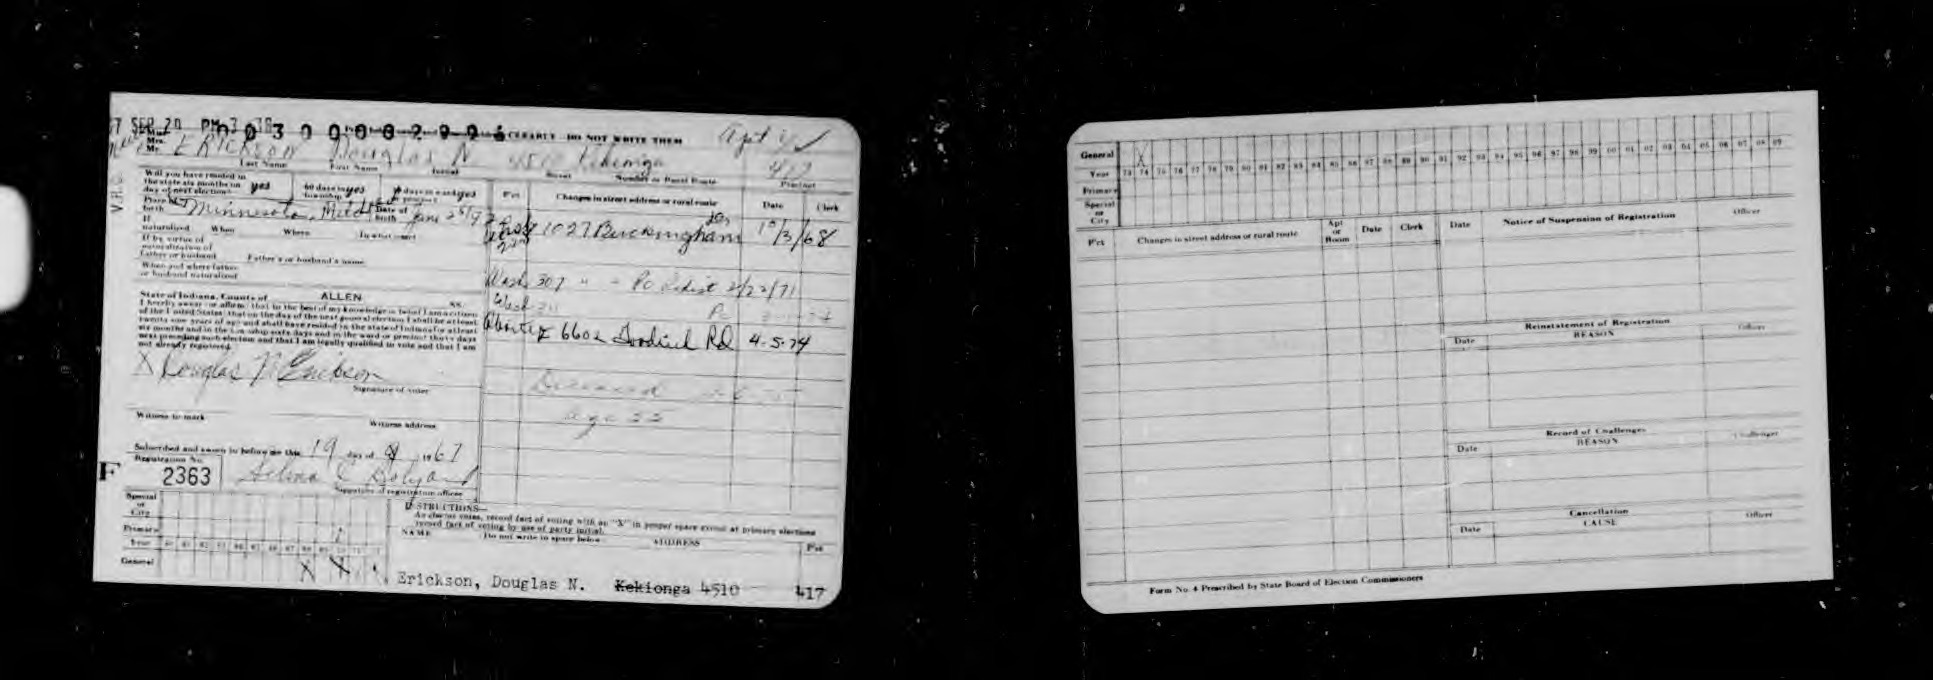 SEP 20 PM 3
CLEARLY DO NOT WRITE THEM
Apt
Miss
Mrs.
Mr.
Erickson Douglas N. 4510 Kekionga 417
Last Name First Name Initial Street Number or Rural Route Precinct
Will you have resided in the state six months on day of next election? yes 60 days in township yes 30 days in ward or precinct yes
Place of birth Minnesota Date of birth June
If naturalized When Where In what court
If by virtue of naturalization of father or husband Father's or husband's name
When and where father or husband naturalized
State of Indiana, County of ALLEN SS.
I hereby swear (or affirm) that to the best of my knowledge and belief I am a citizen
of the United States; that on the day of the next general election I shall be at least
twenty-one years of age and shall have resided in the state of Indiana for at least
six months and in the township sixty days and in the ward or precinct thirty days
next preceding such election and that I am legally qualified to vote and that I am
not already registered.
X Douglas N. Erickson
Signature of voter
Witness to mark Witness address
Subscribed and sworn to before me this 19 day of 9 1967
Registration No.
F 2363
Signature of registration officer
Pct Changes in street address or rural route Date Clerk
1027 Buckingham 10/3/68
Wash 307 " - Redist 2/22/71
Wash
Aboite 6602 Goodrich Rd 4-5-74
Deceased
age
Special or City
Primary
Year 60 61 62 63 64 65 66 67 68 69 70 71 72
General X X
INSTRUCTIONS—
As elector votes, record fact of voting with an "X" in proper space except at primary elections
record fact of voting by use of party initial.
NAME Do not write in space below ADDRESS Pct
Erickson, Douglas N. Kekionga 4510 417
General X
Year 73 74 75 76 77 78 79 80 81 82 83 84 85 86 87 88 89 90 91 92 93 94 95 96 97 98 99 00 01 02 03 04 05 06 07 08 09
Primary
Special or City
Pct Changes in street address or rural route Apt or Room Date Clerk
Date Notice of Suspension of Registration Officer
Reinstatement of Registration
Date REASON Officer
Record of Challenges
Date REASON Challenger
Cancellation
Date CAUSE Officer
Form No. 4 Prescribed by State Board of Election Commissioners